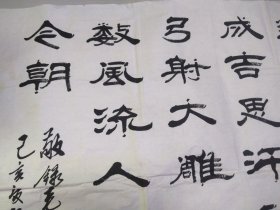 成吉思汗
弓射大雕
數風流人
今朝
敬錄毛
己亥夏